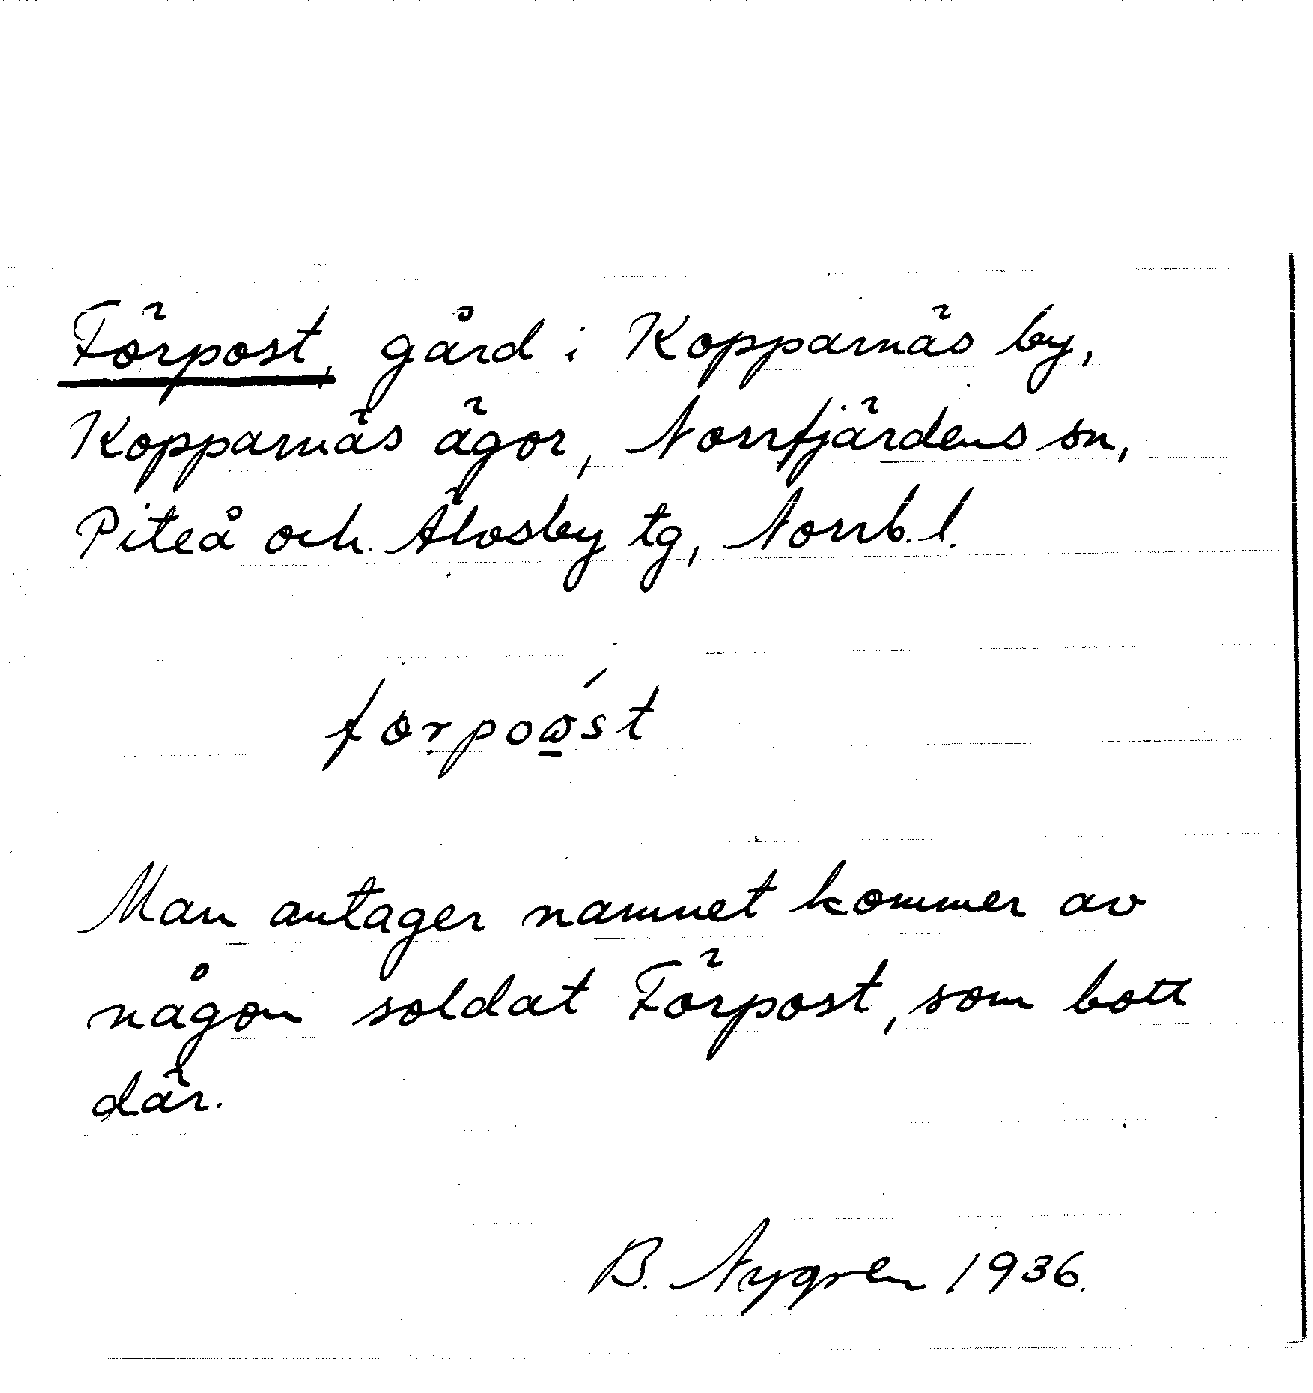 Förpost, gård i Kopparnäs by,
Kopparnäs ägor, Norrfjärdens sn,
Piteå och Älvsby tg, Norrb. l.
Man antager namnet kommer av
någon soldat Förpost, som bott
där.
B. Nygren 1936.